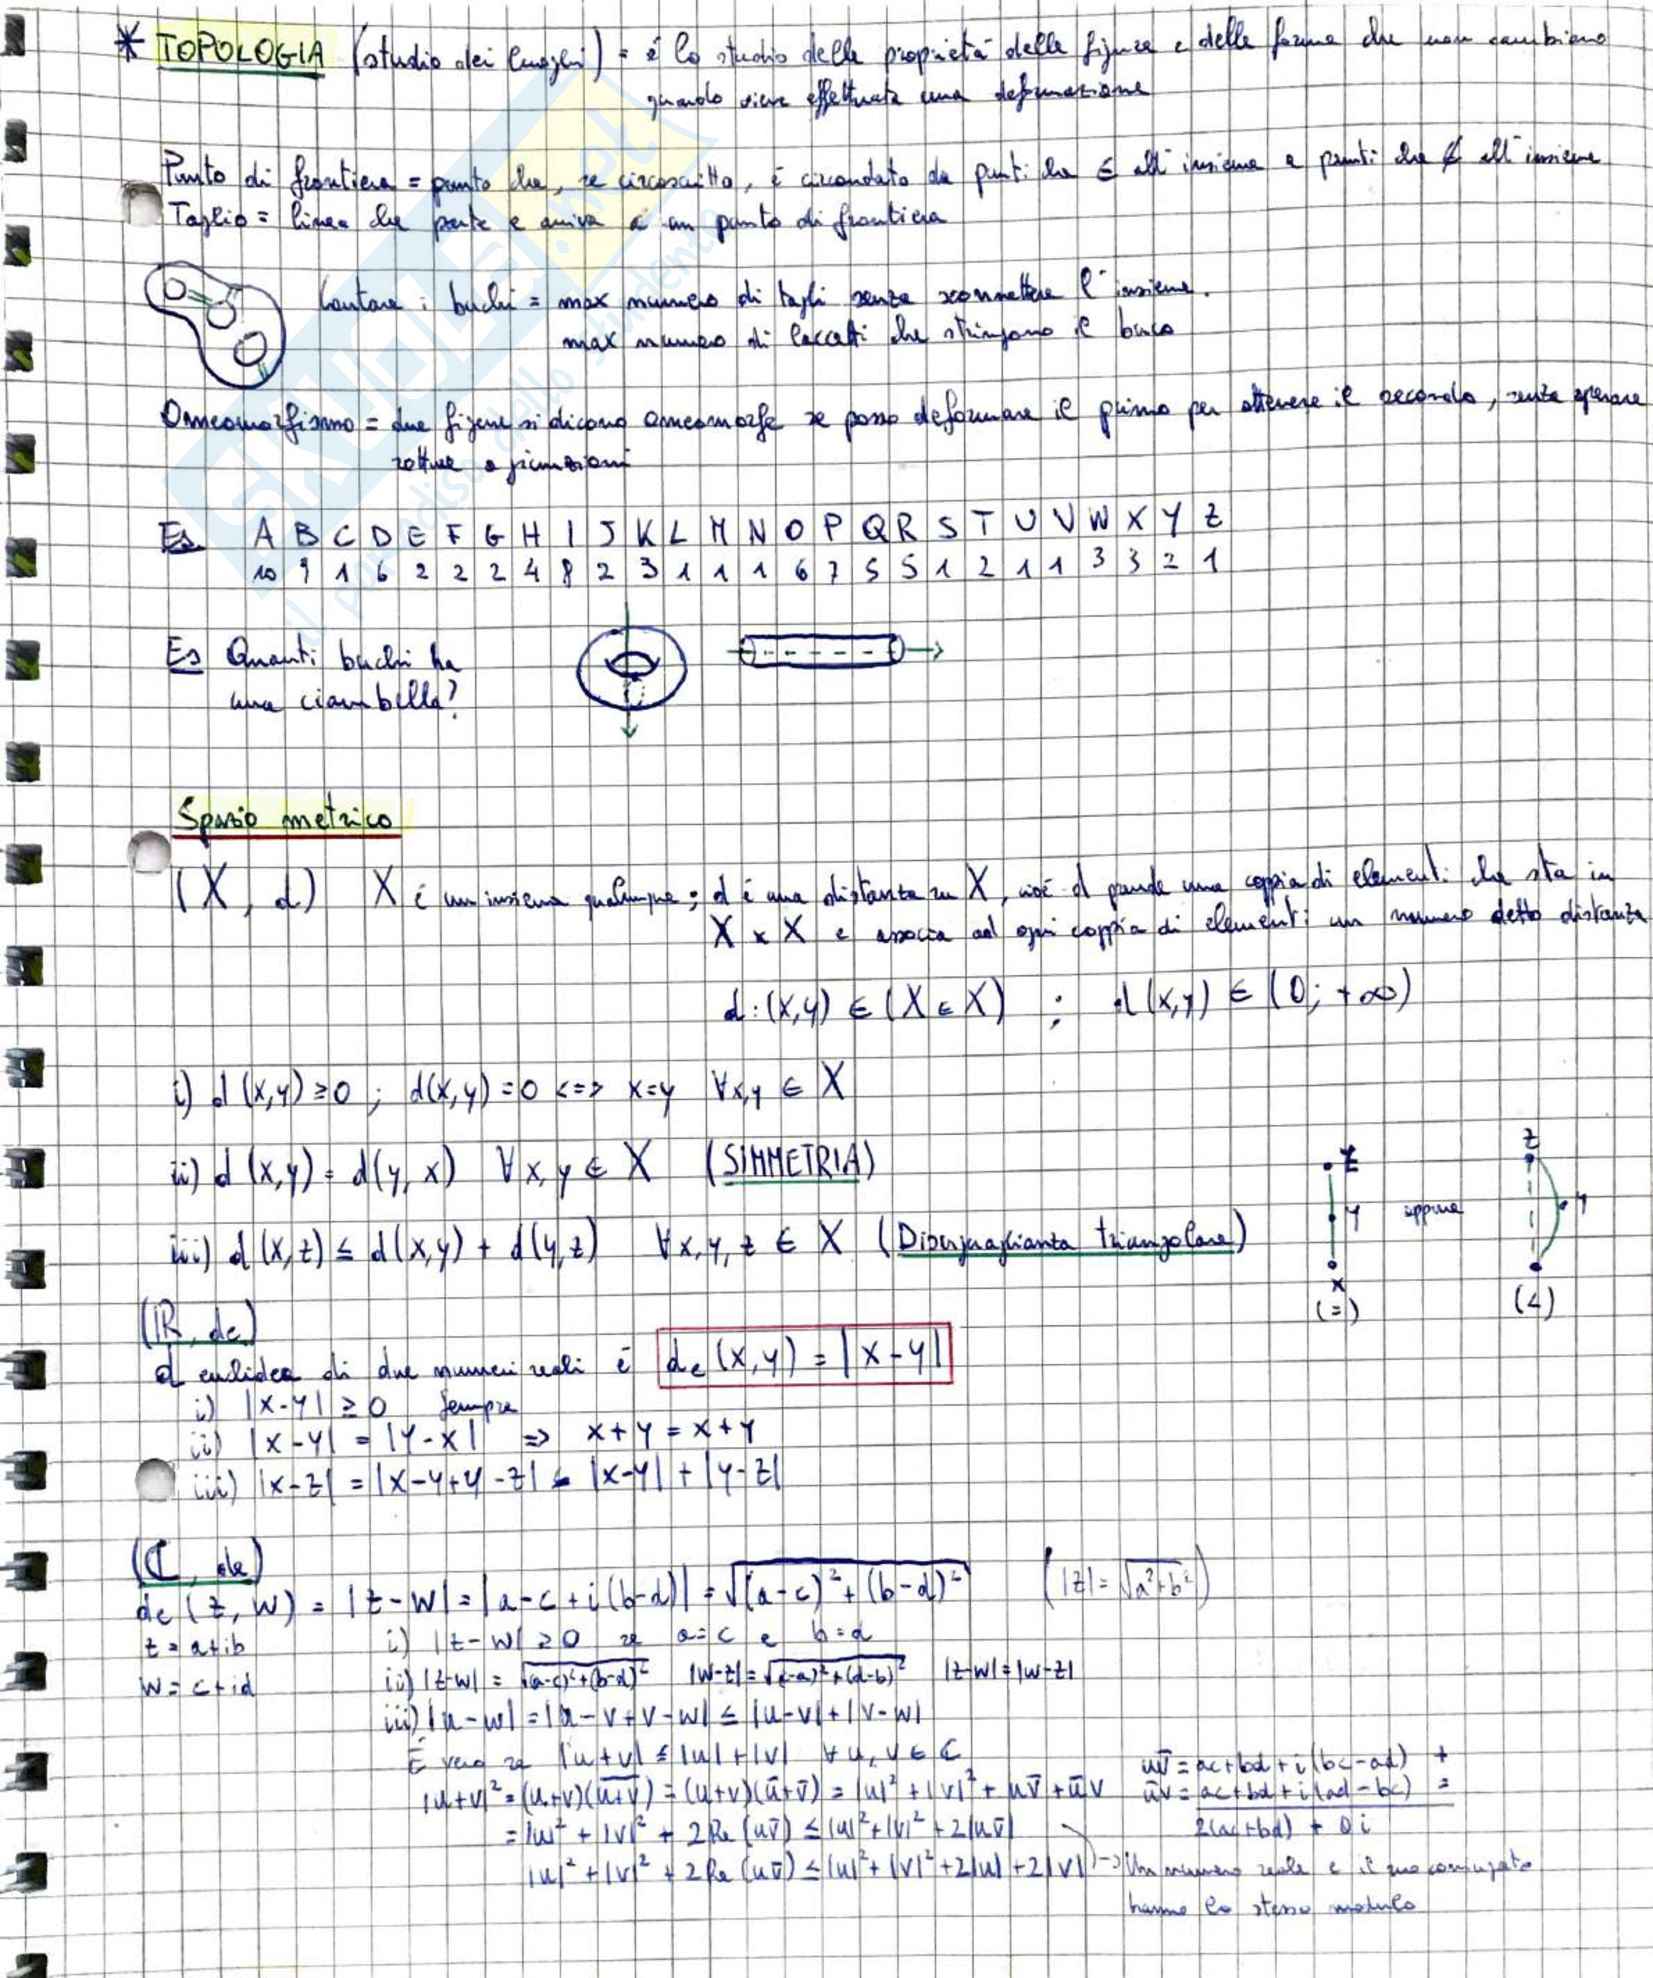 * TOPOLOGIA (studio dei luoghi) = è lo studio delle proprietà delle figure e delle forme che non cambiano
quando viene effettuata una deformazione
Punto di frontiera = punto che, se circoscritto, è circondato da punti che ∈ all'insieme e punti che ∉ all'insieme
Taglio = linea che parte e arriva a un punto di frontiera
Contare i buchi = max numero di tagli senza sconnettere l'insieme.
max numero di laccetti che stringono il buco
Omeomorfismo = due figure si dicono omeomorfe se posso deformare il primo per ottenere il secondo, senza operare
rotture o giunzioni
Es A B C D E F G H I J K L M N O P Q R S T U V W X Y Z
10 9 1 6 2 2 2 4 8 2 3 1 1 1 6 7 5 5 1 2 1 1 3 3 2 1
Es Quanti buchi ha
una ciambella?
Spazio metrico
(X, d) X è un insieme qualunque; d è una distanza su X, cioè d prende una coppia di elementi che sta in
X x X e associa ad ogni coppia di elementi un numero detto distanza
d: (x,y) ∈ (X ∈ X) ; d(x,y) ∈ (0; +∞)
i) d(x,y) ≥ 0 ; d(x,y) = 0 <=> x=y ∀x,y ∈ X
ii) d(x,y) = d(y,x) ∀x,y ∈ X (SIMMETRIA)
iii) d(x,z) ≤ d(x,y) + d(y,z) ∀x,y,z ∈ X (Disuguaglianza triangolare)
z
y
x
(=)
oppure
z
y
(<)
(ℝ, de)
d euclidea di due numeri reali è de(x,y) = |x-y|
i) |x-y| ≥ 0 Sempre
ii) |x-y| = |y-x| => x+y = x+y
iii) |x-z| = |x-y+y-z| ≤ |x-y| + |y-z|
(ℂ, de)
de(z,w) = |z-w| = |a-c+i(b-d)| = √(a-c)²+(b-d)² (|z| = √a²+b²)
z = a+ib i) |z-w| ≥ 0 se a=c e b=d
w = c+id ii) |z-w| = √(a-c)²+(b-d)² |w-z| = √(c-a)²+(d-b)² |z-w| = |w-z|
iii) |u-w| = |u-v+v-w| ≤ |u-v| + |v-w|
È vero se |u+v| ≤ |u|+|v| ∀u,v ∈ C
|u+v|² = (u+v)(u̅+̅v̅) = (u+v)(u̅+v̅) = |u|² + |v|² + uv̅ + u̅v
= |u|² + |v|² + 2Re(uv̅) ≤ |u|²+|v|²+2|uv̅|
|u|² + |v|² + 2Re(uv̅) ≤ |u|² + |v|² + 2|u| + 2|v|
uv̅ = ac+bd+i(bc-ad) +
u̅v = ac+bd+i(ad-bc) =
2(ac+bd) + 0i
-> Un numero reale e il suo coniugato
hanno lo stesso modulo
SKUOLA.net